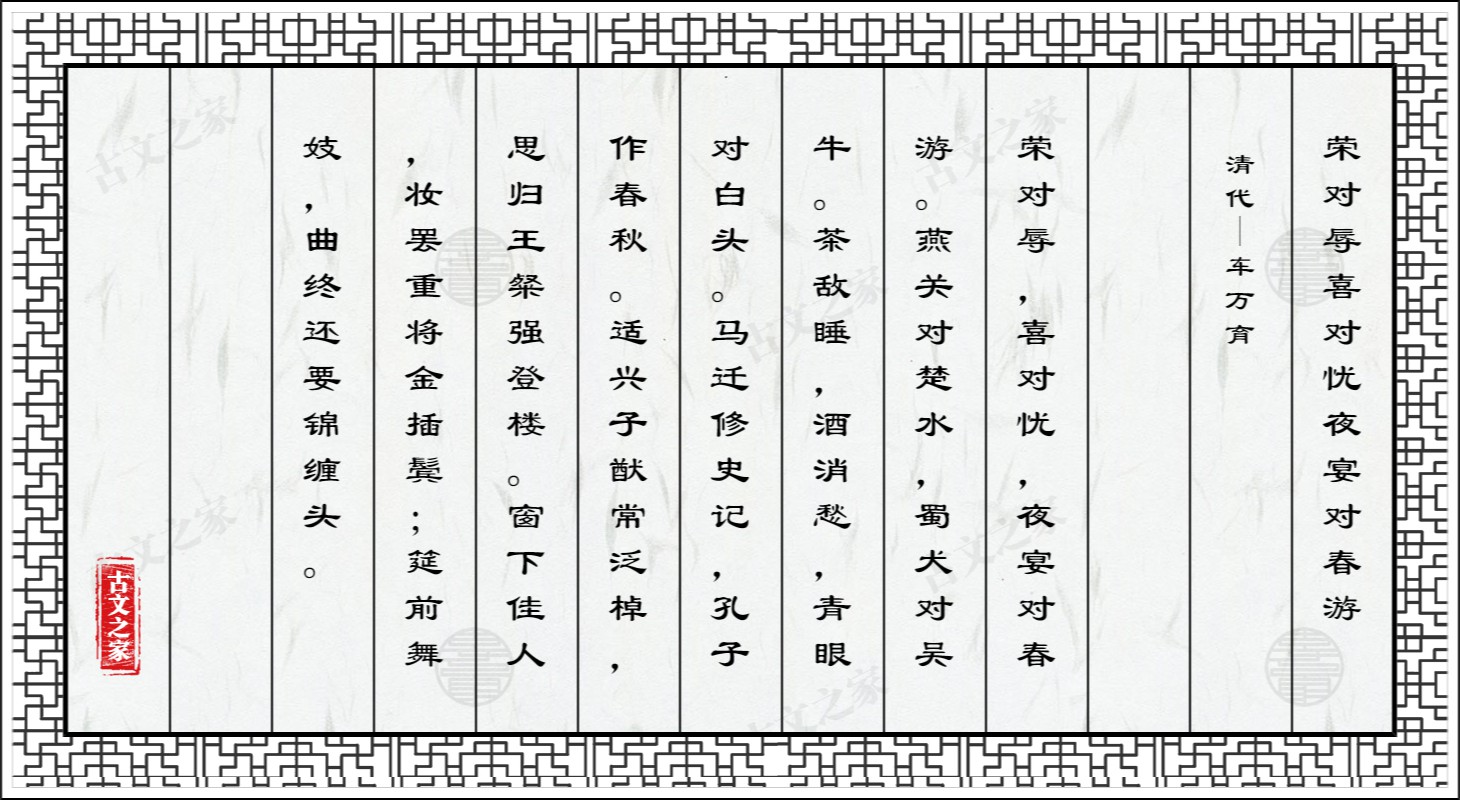 荣对辱喜对忧夜宴对春游
清代—车万育
荣对辱，喜对忧，夜宴对春
游。燕关对楚水，蜀犬对吴
牛。茶敌睡，酒消愁，青眼
对白头。马迁修史记，孔子
作春秋。适兴子猷常泛棹，
思归王粲强登楼。窗下佳人
，妆罢重将金插鬓；筵前舞
妓，曲终还要锦缠头。
古文之家
古文之家
古文之家
古文之家
古文之家
古文之家
古文之家